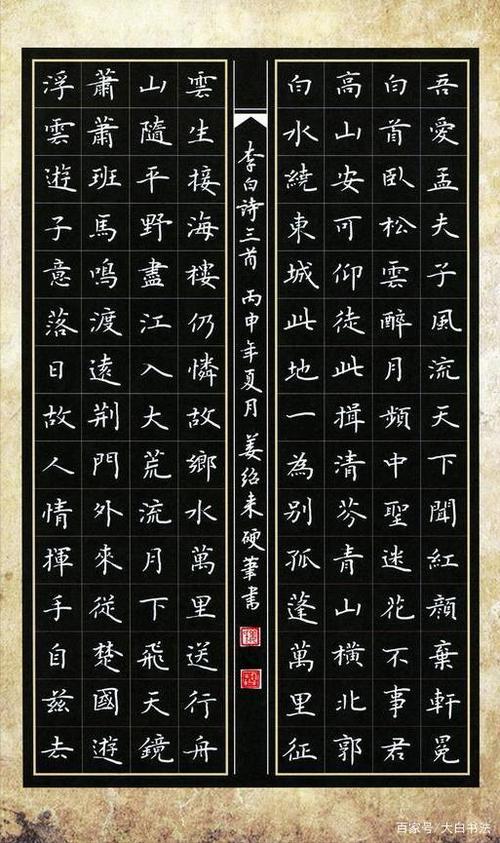 吾愛孟夫子風流天下聞紅顏棄軒冕
白首臥松雲醉月頻中聖迷花不事君
高山安可仰徒此揖清芬青山橫北郭
白水繞東城此地一為別孤蓬萬里征
浮雲遊子意落日故人情揮手自茲去
蕭蕭班馬鳴渡遠荊門外來從楚國遊
山隨平野盡江入大荒流月下飛天鏡
雲生接海樓仍憐故鄉水萬里送行舟
李白诗三首 丙申年夏月 姜绍来硬筆書
百家号/大白书法